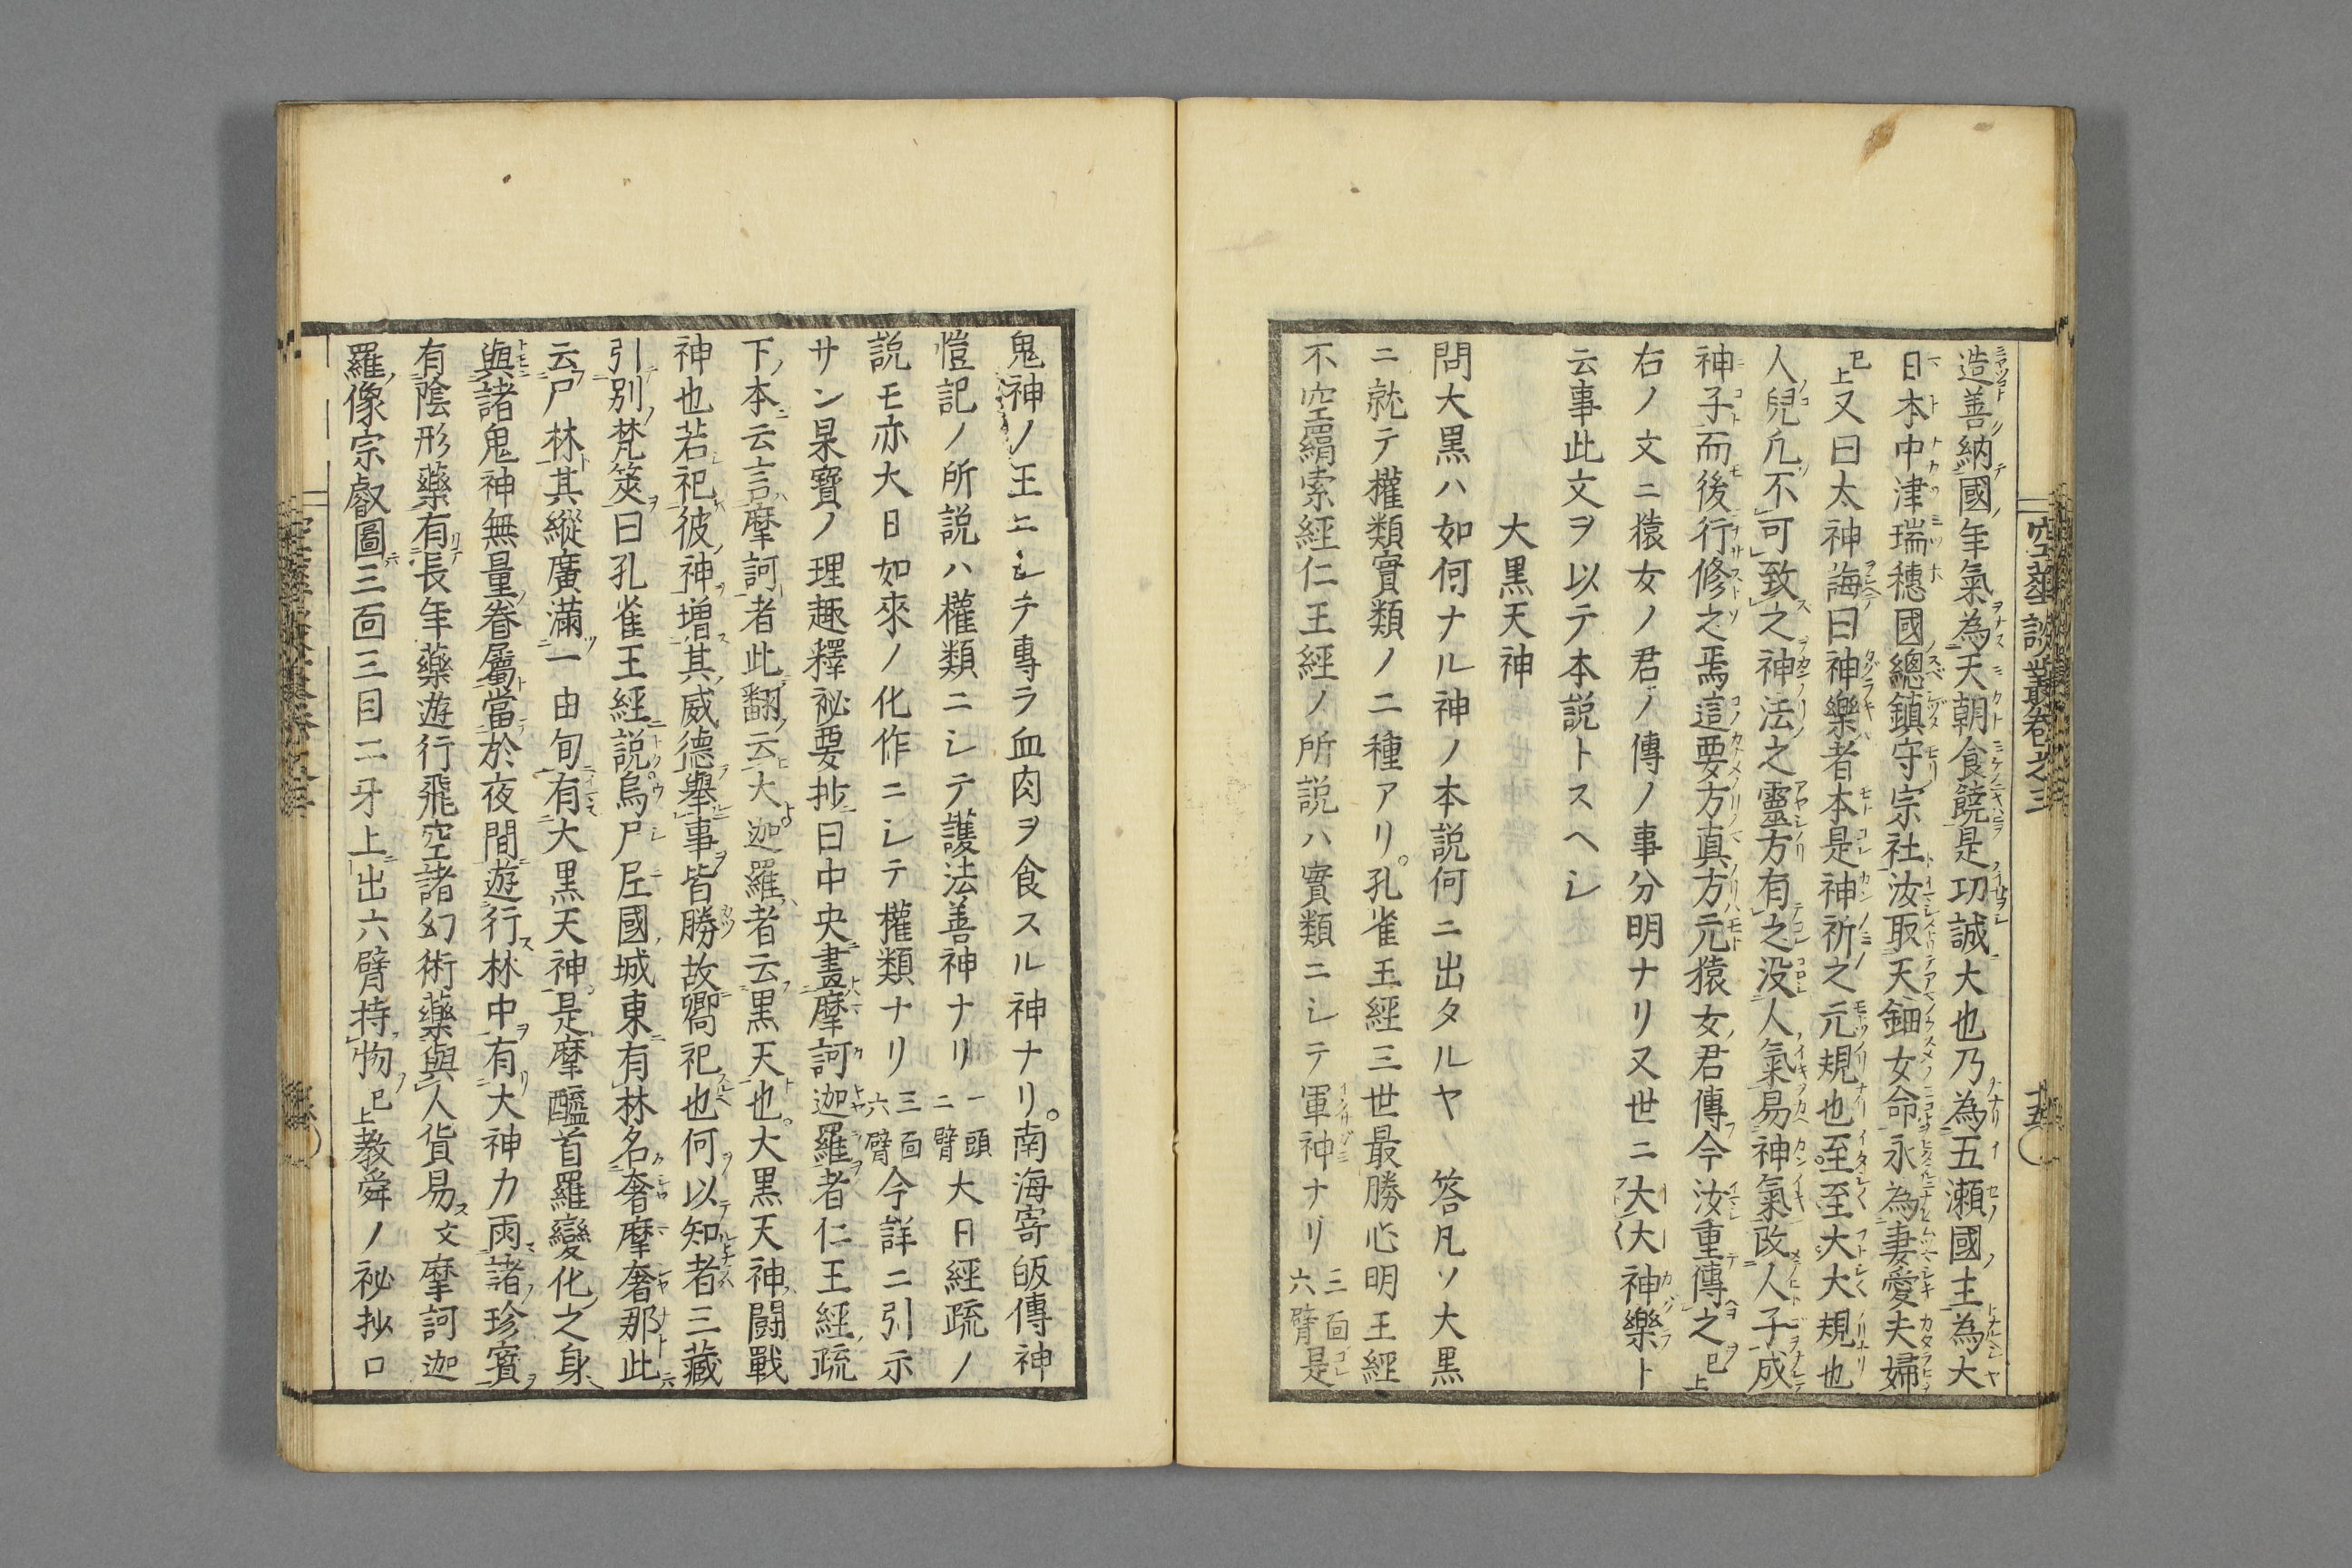 造善納國年氣為天朝食饒是功誠大也乃為五瀬國主為大
日本中津瑞穗國總鎮守宗社汝取天鈿女命永為妻愛夫婦
已上又曰太神誨曰神樂者本是神祈之元規也至至大大規也
人兒凢不可致之神法之靈方有之没人氣易神氣改人子成
神子而後行修之焉這要方真方元猿女君傳今汝重傳之已上
右ノ文ニ猿女ノ君ノ傳ノ事分明ナリ又世ニ大大神樂ト
云事此文ヲ以テ本説トスヘシ
大黒天神
問大黒ハ如何ナル神ノ本説何ニ出タルヤ答凡ソ大黒
ニ就テ權類實類ノ二種アリ。孔雀王經三世最勝心明王經
不空羂索經仁王經ノ所説ハ實類ニシテ軍神ナリ三面六臂是
鬼神ノ王ニシテ專ラ血肉ヲ食スル神ナリ。南海寄皈傳神
愷記ノ所説ハ權類ニシテ護法善神ナリ一頭二臂大日經疏ノ
説モ亦大日如來ノ化作ニシテ權類ナリ三面六臂今詳ニ引示
サン杲寶ノ理趣釋祕要抄曰中央畫摩訶迦羅者仁王經疏
下本云言摩訶者此翻云大迦羅者云黒天也。大黒天神闘戰
神也若祀彼神増其威德舉事皆勝故嚮祀也何以知者三藏
引別梵筴曰孔雀王經説烏尸尼國城東有林名奢摩奢那此
云尸林其縱廣滿一由旬有大黒天神。是摩醯首羅變化之身
與諸鬼神無量眷屬當於夜間遊行林中有大神力雨諸珍寳
有陰形藥有長年藥遊行飛空諸幻術藥與人貨易文摩訶迦
羅像宗叡圖三面三目二牙上出六臂持物已上教舜ノ祕抄口
空華談叢卷之三
十五